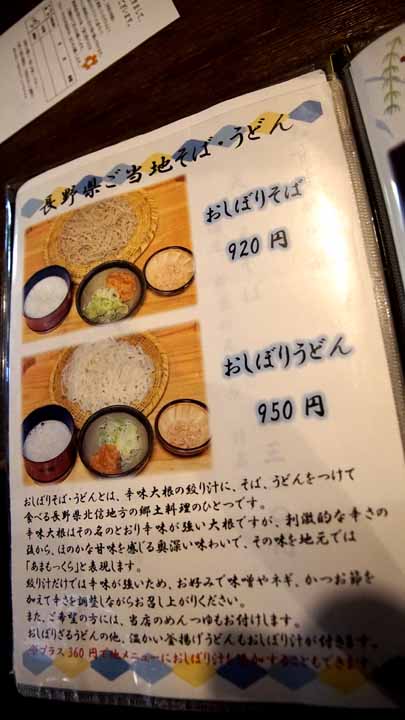 長野県ご当地そば・うどん
おしぼりそば
920 円
おしぼりうどん
950 円
おしぼりそば・うどんとは、辛味大根の絞り汁に、そば、うどんをつけて
食べる長野県北信地方の郷土料理のひとつです。
辛味大根はその名のとおり辛味が強い大根ですが、刺激的な辛さの
後から、ほのかな甘味を感じる奥深い味わいで、その味を地元では
「あまもっくら」と表現します。
絞り汁だけでは辛味が強いため、お好みで味噌やネギ、かつお節を
加えて辛さを調整しながらお召し上がりください。
また、ご希望の方には、当店のめんつゆもお付けします。
おしぼりざるうどんの他、温かい釜揚げうどんもおしぼり汁が付きます。
プラス 360 円で他メニューにおしぼり汁を追加することもできます。